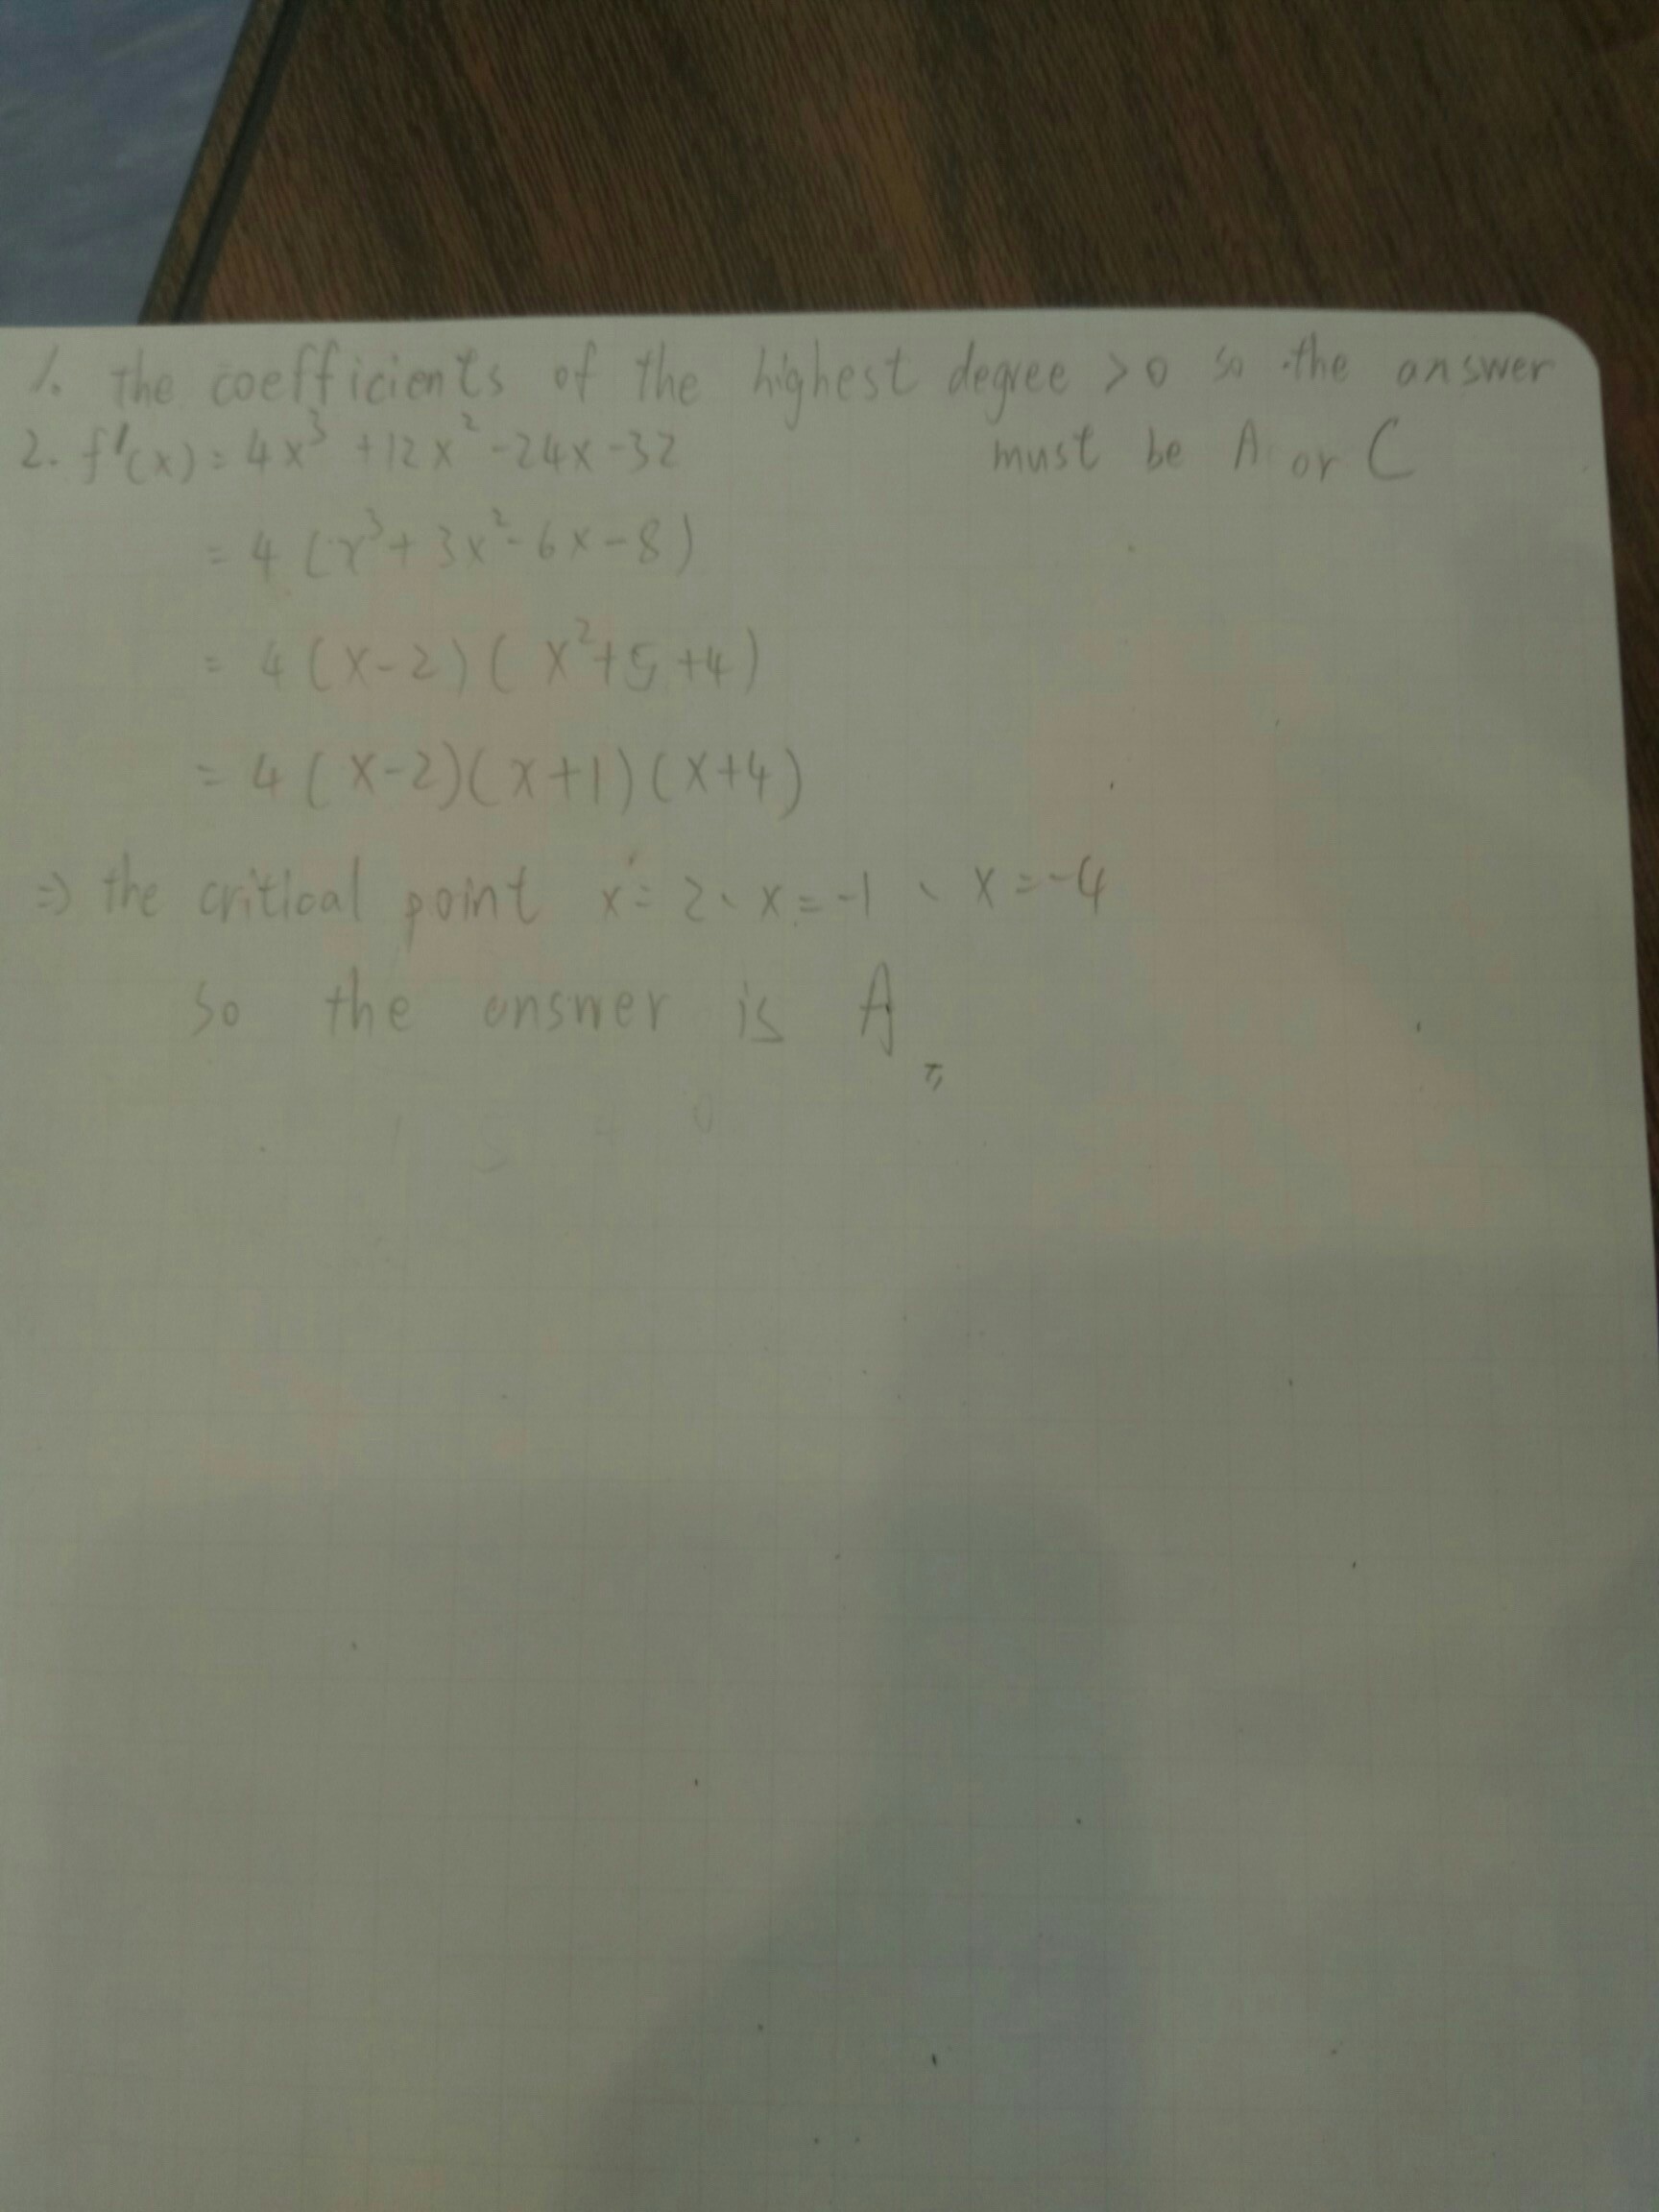 1. the coefficients of the highest degree >0 so the answer
must be A or C
2. f'(x) = 4x³ +12x² -24x -32
= 4 (x³ + 3x² - 6x - 8)
= 4 (x-2) ( x² + 5 + 4)
= 4 (x-2)(x+1)(x+4)
⇒ the critical point x = 2、x = -1 、x = -4
so the answer is A